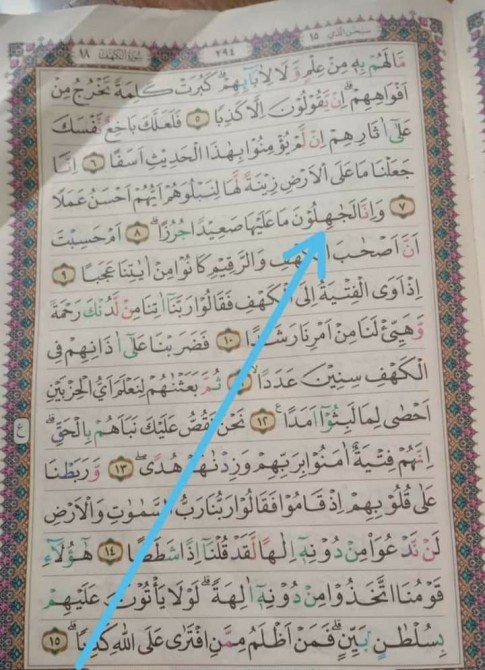 سبحن الذي ١٥
٢٩٤
سورة الكهف ١٨
مَا لَهُمْ بِهٖ مِنْ عِلْمٍ وَّلَا لِاٰبَآئِهِمْ ؕ كَبُرَتْ كَلِمَةً تَخْرُجُ مِنْ
اَفْوَاهِهِمْ ؕ اِنْ يَّقُوْلُوْنَ اِلَّا كَذِبًا ٥ فَلَعَلَّكَ بَاخِعٌ نَّفْسَكَ
عَلٰٓى اٰثَارِهِمْ اِنْ لَّمْ يُؤْمِنُوْا بِهٰذَا الْحَدِيْثِ اَسَفًا ٦ اِنَّا
جَعَلْنَا مَا عَلَى الْاَرْضِ زِيْنَةً لَّهَا لِنَبْلُوَهُمْ اَيُّهُمْ اَحْسَنُ عَمَلًا
٧ وَاِنَّا لَجٰهِلُوْنَ مَا عَلَيْهَا صَعِيْدًا جُرُزًا ؕ ٨ اَمْ حَسِبْتَ
اَنَّ اَصْحٰبَ وَالرَّقِيْمِ كَانُوْا مِنْ اٰيٰتِنَا عَجَبًا ٩
اِذْ اَوَى الْفِتْيَةُ اِلَى الْكَهْفِ فَقَالُوْا رَبَّنَآ اٰتِنَا مِنْ لَّدُنْكَ رَحْمَةً
وَّهَيِّئْ لَنَا مِنْ اَمْرِنَا رَشَدًا ١٠ فَضَرَبْنَا عَلٰٓى اٰذَانِهِمْ فِى
الْكَهْفِ سِنِيْنَ عَدَدًا ۙ ثُمَّ بَعَثْنٰهُمْ لِنَعْلَمَ اَىُّ الْحِزْبَيْنِ
اَحْصٰى لِمَا لَبِثُوْٓا اَمَدًا ١٢ نَحْنُ نَقُصُّ عَلَيْكَ نَبَاَهُمْ بِالْحَقِّ ؕ
ع
اِنَّهُمْ فِتْيَةٌ اٰمَنُوْا بِرَبِّهِمْ وَزِدْنٰهُمْ هُدًى ۖ ١٣ وَّرَبَطْنَا
عَلٰى قُلُوْبِهِمْ اِذْ قَامُوْا فَقَالُوْا رَبُّنَا رَبُّ السَّمٰوٰتِ وَالْاَرْضِ
لَنْ نَّدْعُوَا۟ مِنْ دُوْنِهٖٓ اِلٰهًا لَّقَدْ قُلْنَآ اِذًا شَطَطًا ١٤ هٰٓؤُلَآءِ
قَوْمُنَا اتَّخَذُوْا مِنْ دُوْنِهٖٓ اٰلِهَةً ؕ لَوْلَا يَاْتُوْنَ عَلَيْهِمْ
بِسُلْطٰنٍۭ بَيِّنٍ ؕ فَمَنْ اَظْلَمُ مِمَّنِ افْتَرٰى عَلَى اللّٰهِ كَذِبًا ؕ ١٥